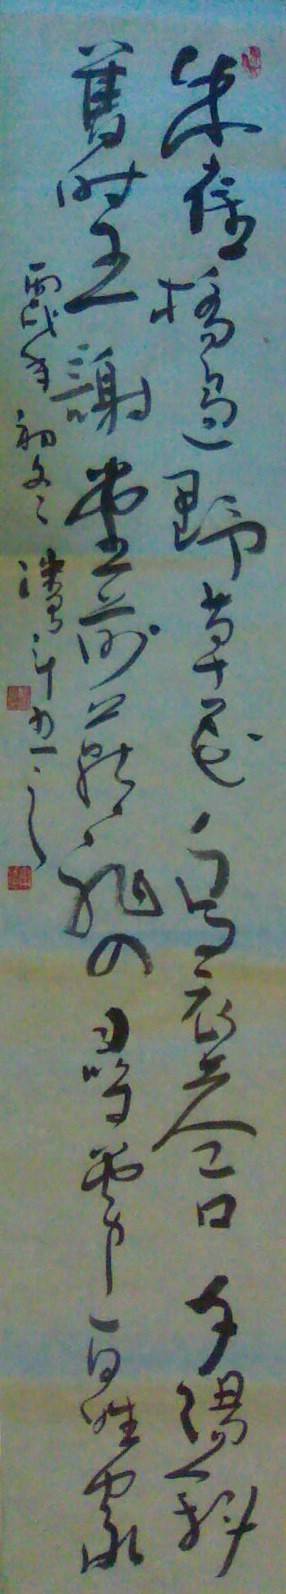 朱雀橋邊野草花烏衣巷口夕陽斜
舊時王謝堂前燕飛入尋常百姓家
丙戌年初冬